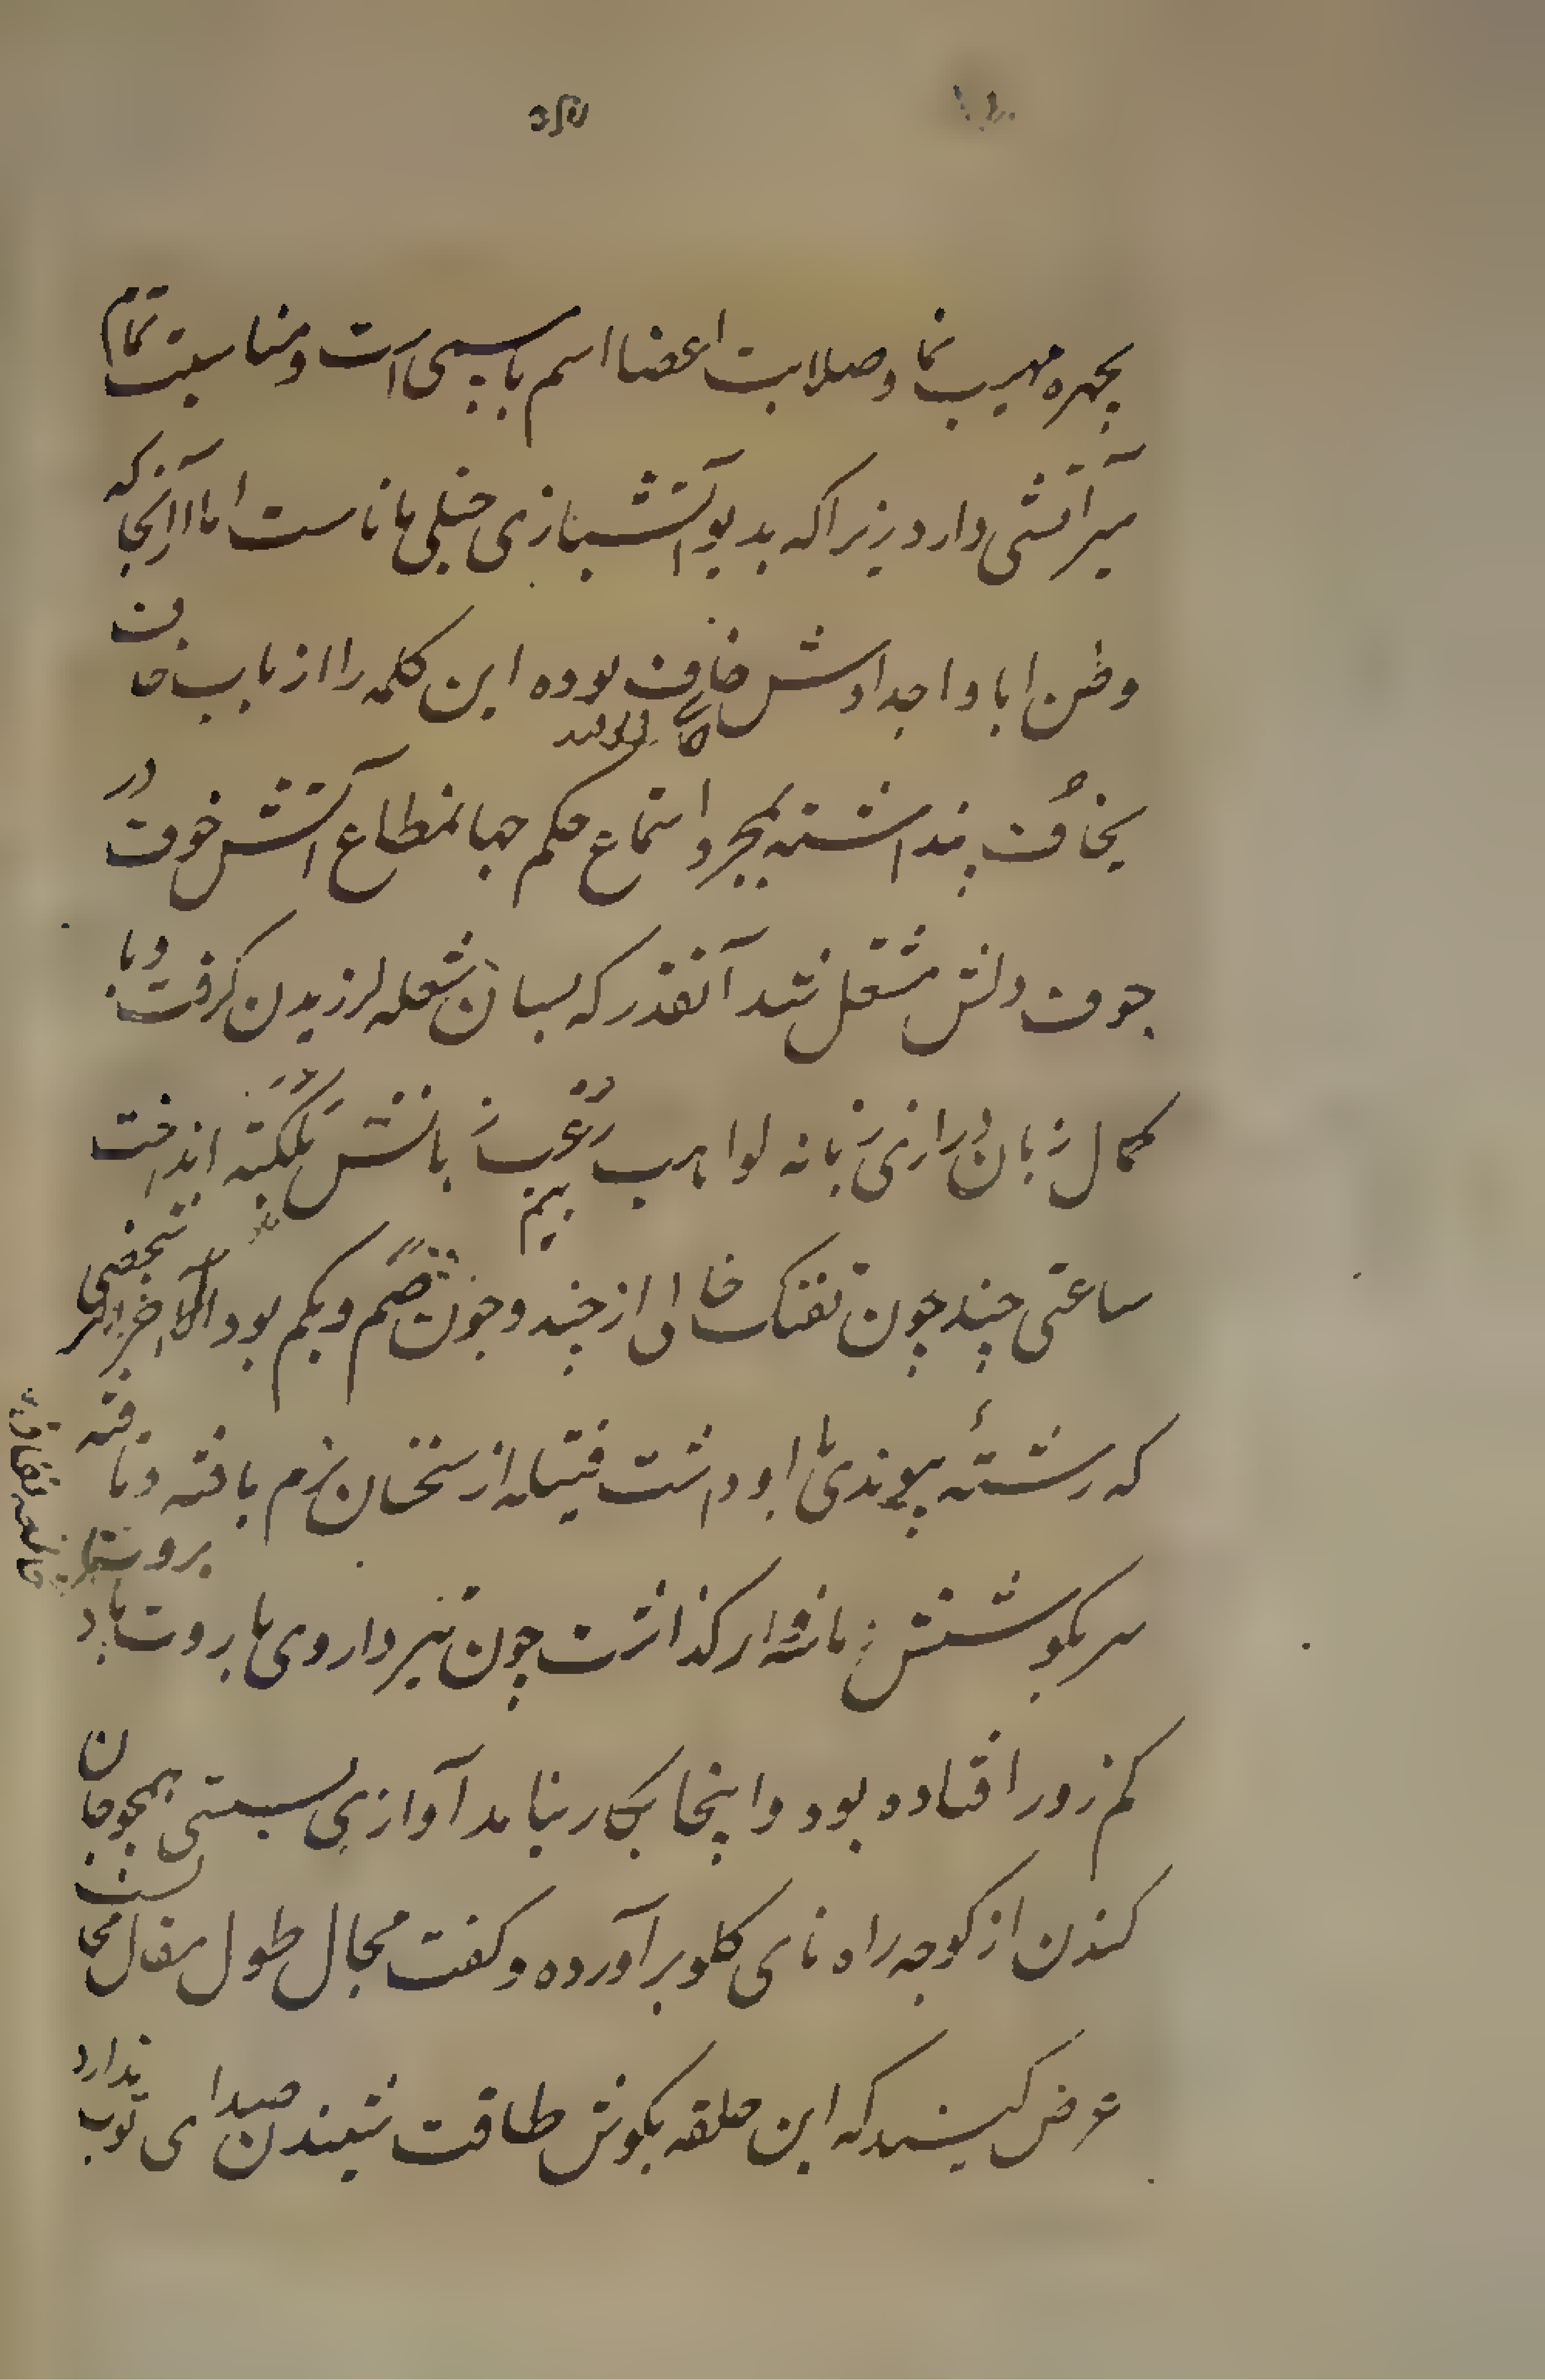 بچهره مهیب نما و صلابت اعضا اسم بامسمی است و مناسبت تمام
میرآتشی دارد زیرا که بدیو آتشبازی خیلی ماناست اما از آنجا که
وطن ابا و اجدادش خاف بوده این کلمه را از باب خاف
یخاف پنداشته بمجرد استماع حکم جهانمطاع آتش خوف در
جوف دلش مشتعل شد آنقدر که بسان شعله لرزیدن گرفت و با
کمال زبان درازی زبانه لوا هب رعب زبانش بلکنه انداخت
بیم
ساعتی چند چون تفنگ خالی از چند و چون صم و بکم بود آخر الامر شخصی
که رشتهٔ پیوندی با او داشت فتیله از سخنان نرم بافته و تافته
سر بگوشش زمانه‌وار گذاشت چون تیر داروی باروت باد بروتش
کم زور افتاده بود و اینجا بکار نیامد آوازی بسستی همچو جان
کندن از کوچه راه نای گلو برآورده و گفت مجال طول مقال محالست
عرض کنید که این حلقه بگوش طاقت شنیدن صدای توپ ندارد